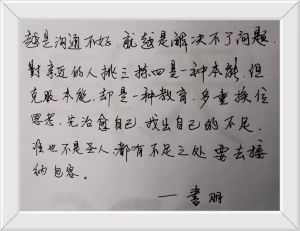 越是沟通不好，就越是解决不了问题.
對亲近的人挑三拣四是一种本能，但
克服本能，却是一种教育，多重换位
思考，先治愈自己，找出自己的不足.
谁也不是圣人，都有不足之处 要去接
纳包容。
——書明